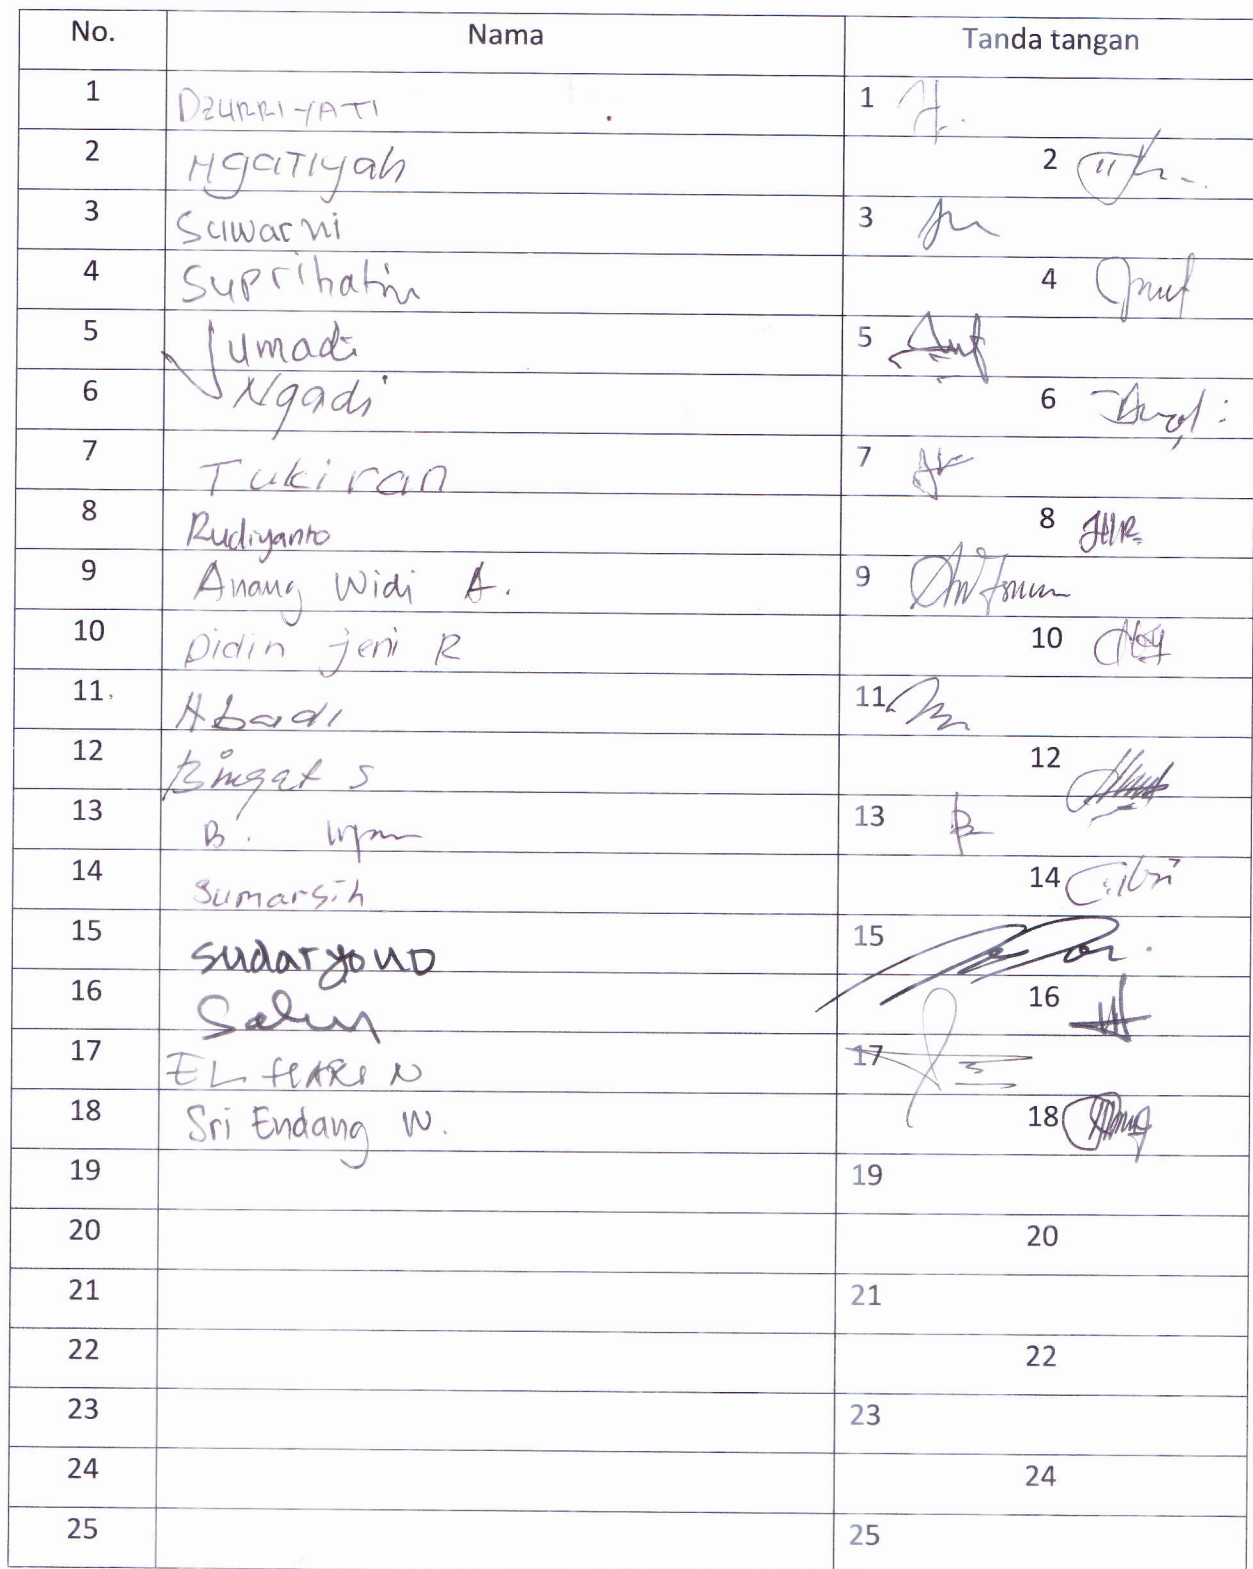 No. Nama Tanda tangan
1 DZURRIYATI 1
2 Ngatiyah 2
3 Suwarni 3
4 Suprihatin 4
5 Jumadi 5
6 Ngadi 6
7 Tukiran 7
8 Rudiyanto 8
9 Anang Widi A. 9
10 Didin jeni R 10
11 Abadi 11
12 Bingat S 12
13 B. 13
14 Sumarsih 14
15 Sudaryono 15
16 16
17 EL HARI N 17
18 Sri Endang W. 18
19 19
20 20
21 21
22 22
23 23
24 24
25 25